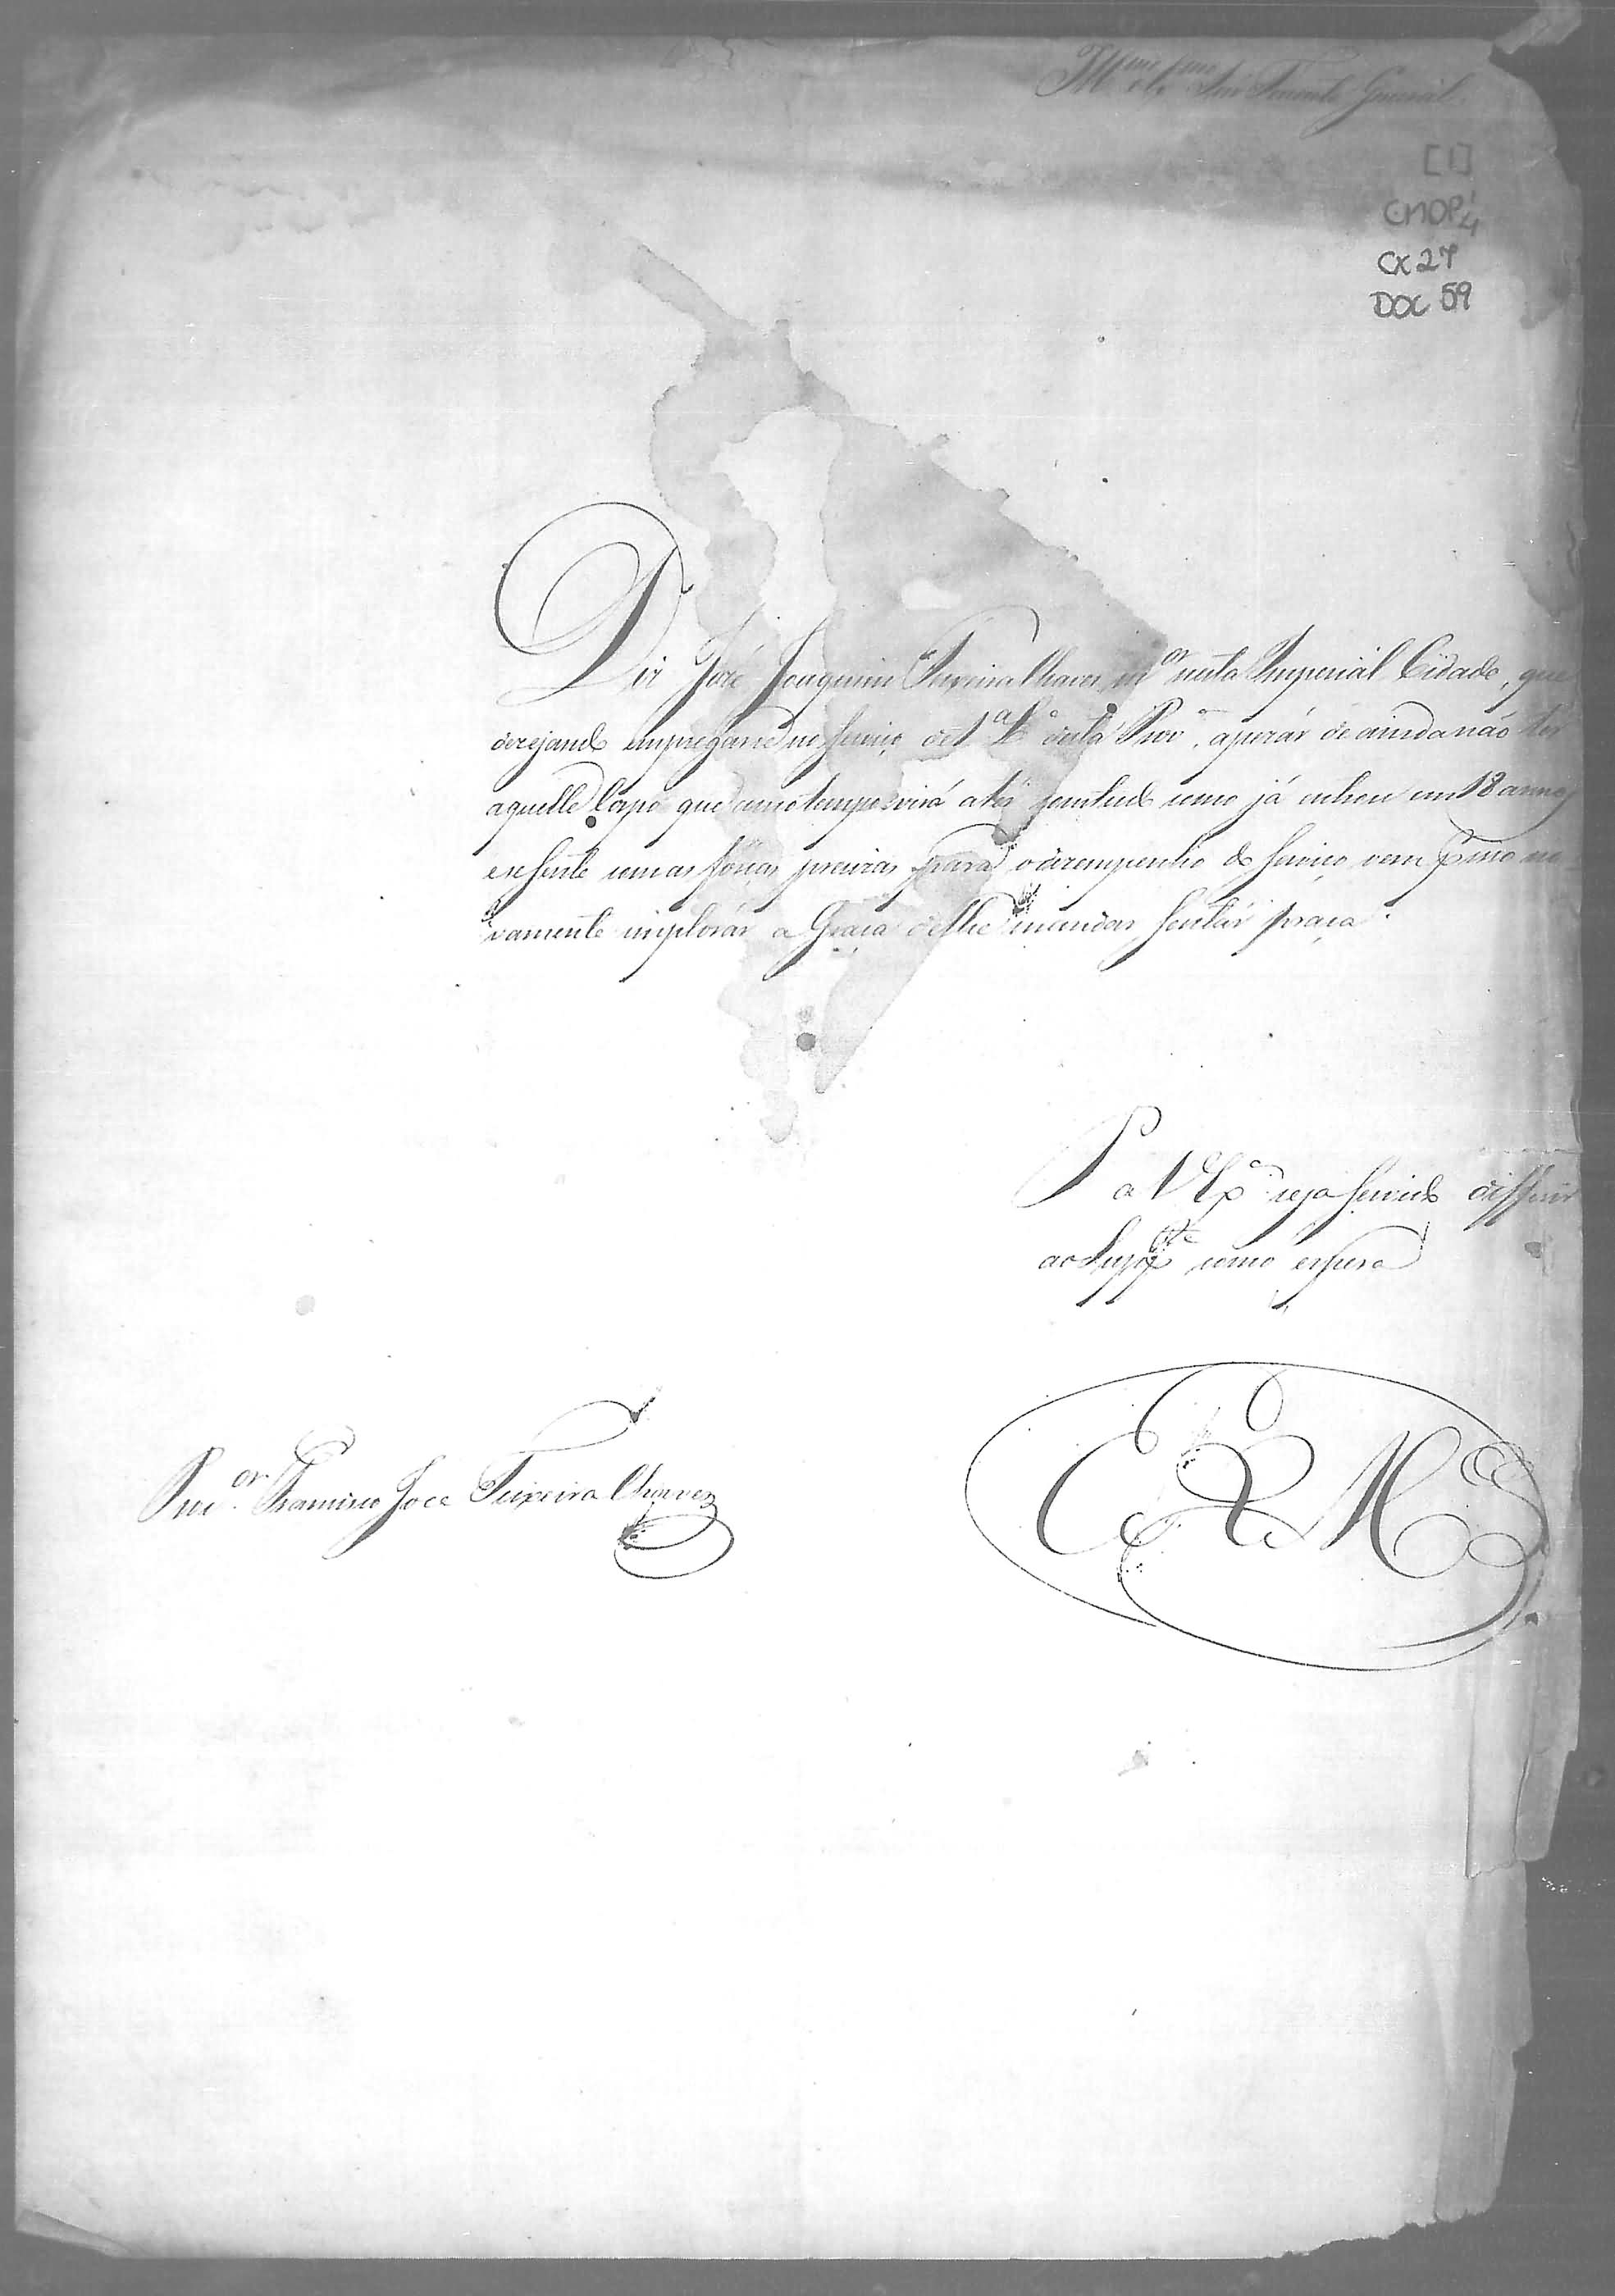 Ill.mo Ex.mo Snr Tenente General
[1]
CMOP4
CX 27
DOC 59
Diz José Joaquim Teixeira Chaves m.or nesta Imperial Cidade, que
dezejando empregarse no serviço de 1.a L.a desta Prov.a, apezár de ainda não ter
aquelle Corpo que com o tempo virá a ter, comtudo como já entrou em 18 annos
e se sente com as fórças precizas para o dezempenho do serviço, vem por isso no
vamente implorár a Graça de lhe mandar sentár praça.
P a V Ex.a seja servido differir
ao Supp.te como espera
E R M.ce
Proc.or Francisco Jose Teixeira Chavez